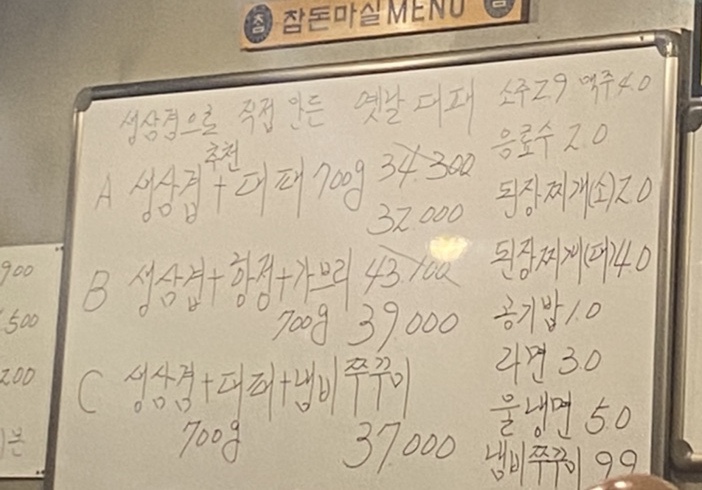 참 참돈마실 MENU 참
생삼겹으로 직접 만든 옛날 대패
추천
A 생삼겹+대패 700g 34.300
32.000
B 생삼겹+항정+가브리 43.100
700g 39.000
C 생삼겹+대패+냄비쭈꾸미
700g 37.000
소주 2.9 맥주 4.0
음료수 2.0
된장찌개(소) 2.0
된장찌개(대) 4.0
공기밥 1.0
라면 3.0
물냉면 5.0
냄비쭈꾸미 9.9
900
500
200